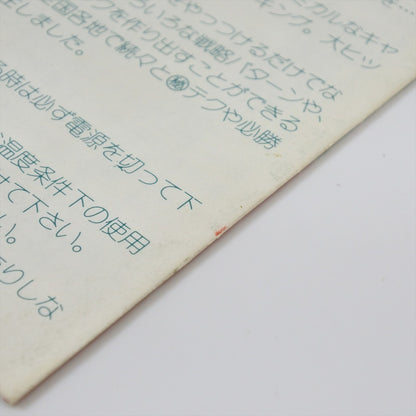 ミカルなキャ
をやっつけるだけでな
キング。大ヒッ
いろいろな戦略パターンや、
クを作り出すことができる
全国各地で続々と㊙テクや必勝
生しました。
る時は必ず電源を切って下
温度条件下の使用
せて下さい。
い。
たりしな